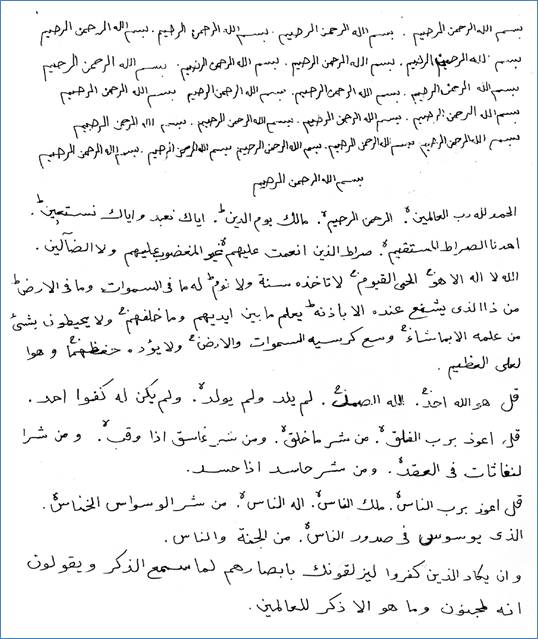 بسم الله الرحمن الرحيم . بسم الله الرحمن الرحيم . بسم الله الرحمن الرحيم . بسم الله الرحمن الرحيم
بسم الله الرحمن الرحيم . بسم الله الرحمن الرحيم . بسم الله الرحمن الرحيم . بسم الله الرحمن الرحيم
بسم الله الرحمن الرحيم . بسم الله الرحمن الرحيم . بسم الله الرحمن الرحيم بسم الله الرحمن الرحيم
بسم الله الرحمن الرحيم . بسم الله الرحمن الرحيم . بسم الله الرحمن الرحيم . بسم الله الرحمن الرحيم
بسم الله الرحمن الرحيم بسم الله الرحمن الرحيم . بسم الله الرحمن الرحيم بسم الله الرحمن الرحيم . بسم الله الرحمن الرحيم
بسم الله الرحمن الرحيم
الحمد لله رب العالمين . الرحمن الرحيم . مالك يوم الدين ط . اياك نعبد و اياك نستعين ط .
اهدنا الصراط المستقيم . صراط الذين انعمت عليهم غير المغضوب عليهم ولا الضآلين .
الله لا اله الا هو الحى القيوم لا تاخذه سنة ولا نوم ط له ما فى السموات وما فى الارض ط
من ذا الذى يشفع عنده الا باذنه ط يعلم ما بين ايديهم وما خلفهم ولا يحيطون بشئ
من علمه الا بما شاء وسع كرسيه السموات والارض ولا يؤده حفظهما و هوا
لعلى العظيم .
قل هو الله احد . الله الصمد . لم يلد ولم يولد . ولم يكن له كفوا احد .
قل اعوذ برب الفلق . من شر ما خلق . ومن شر غاسق اذا وقب . و من شرا
لنفاثات فى العقد . ومن شر حاسد اذا حسد .
قل اعوذ برب الناس . ملك الناس . اله الناس . من شر الوسواس الخناس .
الذى يوسوس فى صدور الناس . من الجنة والناس .
و ان يكاد الذين كفروا ليزلقونك بابصارهم لما سمع الذكر و يقولون
انه لمجنون وما هو الا ذكر للعالمين .